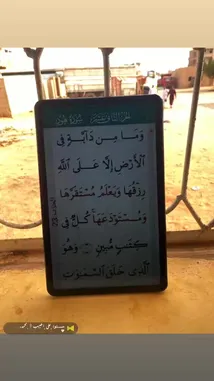 سورة هود
وَمَا مِن دَآبَّةٍ فِي
الْأَرْضِ إِلَّا عَلَى اللَّهِ
رِزْقُهَا وَيَعْلَمُ مُسْتَقَرَّهَا
وَمُسْتَوْدَعَهَا كُلٌّ فِي
كِتَٰبٍ مُّبِينٍ ۝ وَهُوَ
الَّذِي خَلَقَ السَّمَٰوَٰتِ